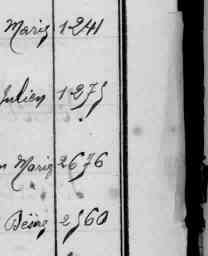 Marie 1241
Julien 1275
n Marie 2676
Désiré 2560